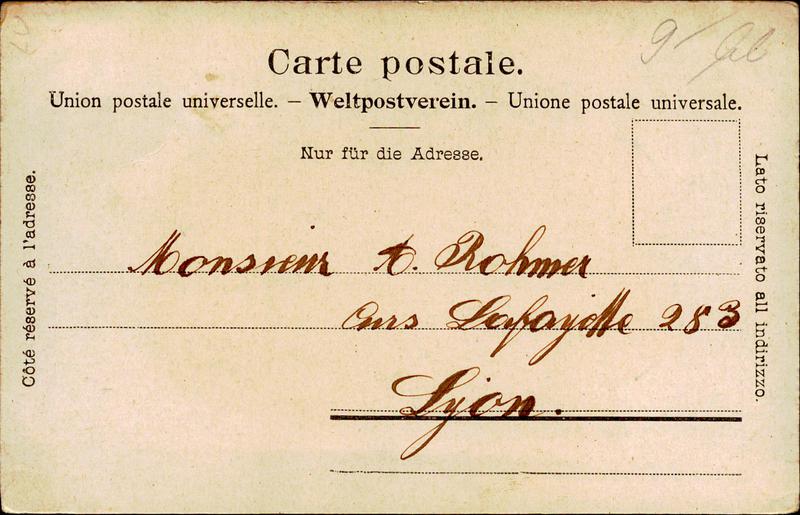 Carte postale.
Union postale universelle. – Weltpostverein. – Unione postale universale.
Nur für die Adresse.
Côté réservé à l'adresse.
Lato riservato all indirizzo.
Monsieur A. Rohmer
Curs Lafayette 283
Lyon.